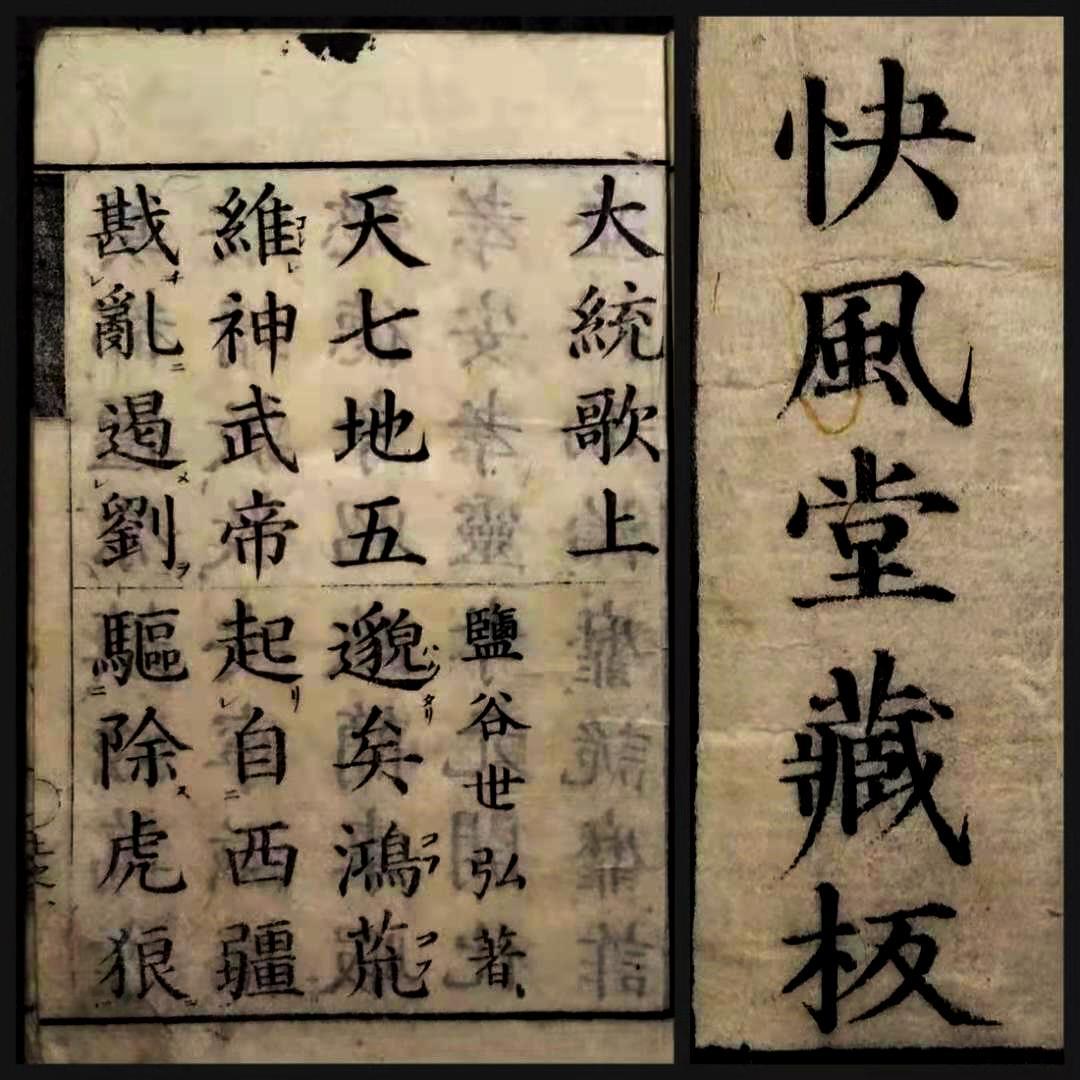 大統歌上
鹽谷世弘著
天七地五邈矣鴻荒
維神武帝起自西疆
戡亂遏劉驅除虎狼
快風堂藏板